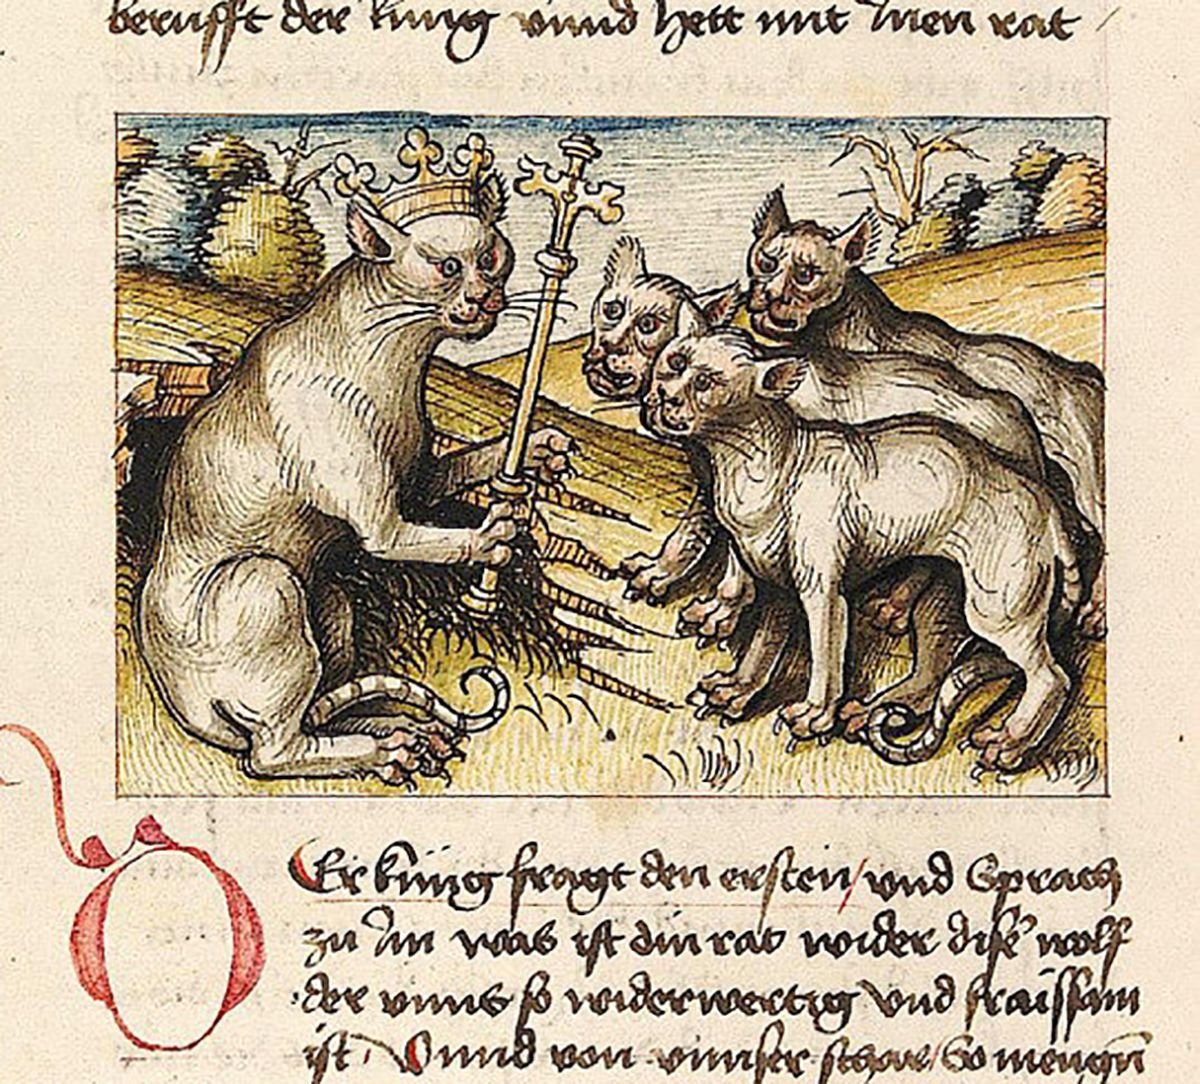 berufft der kung vnnd hett mit Inen rat /
Er küng fragt den ersten / vnd Sprach
zu Im was ist din rat wider dise wolf
der vnns so widerwertig vnd fraissam
ist. Vnnd von vnnser schar / So